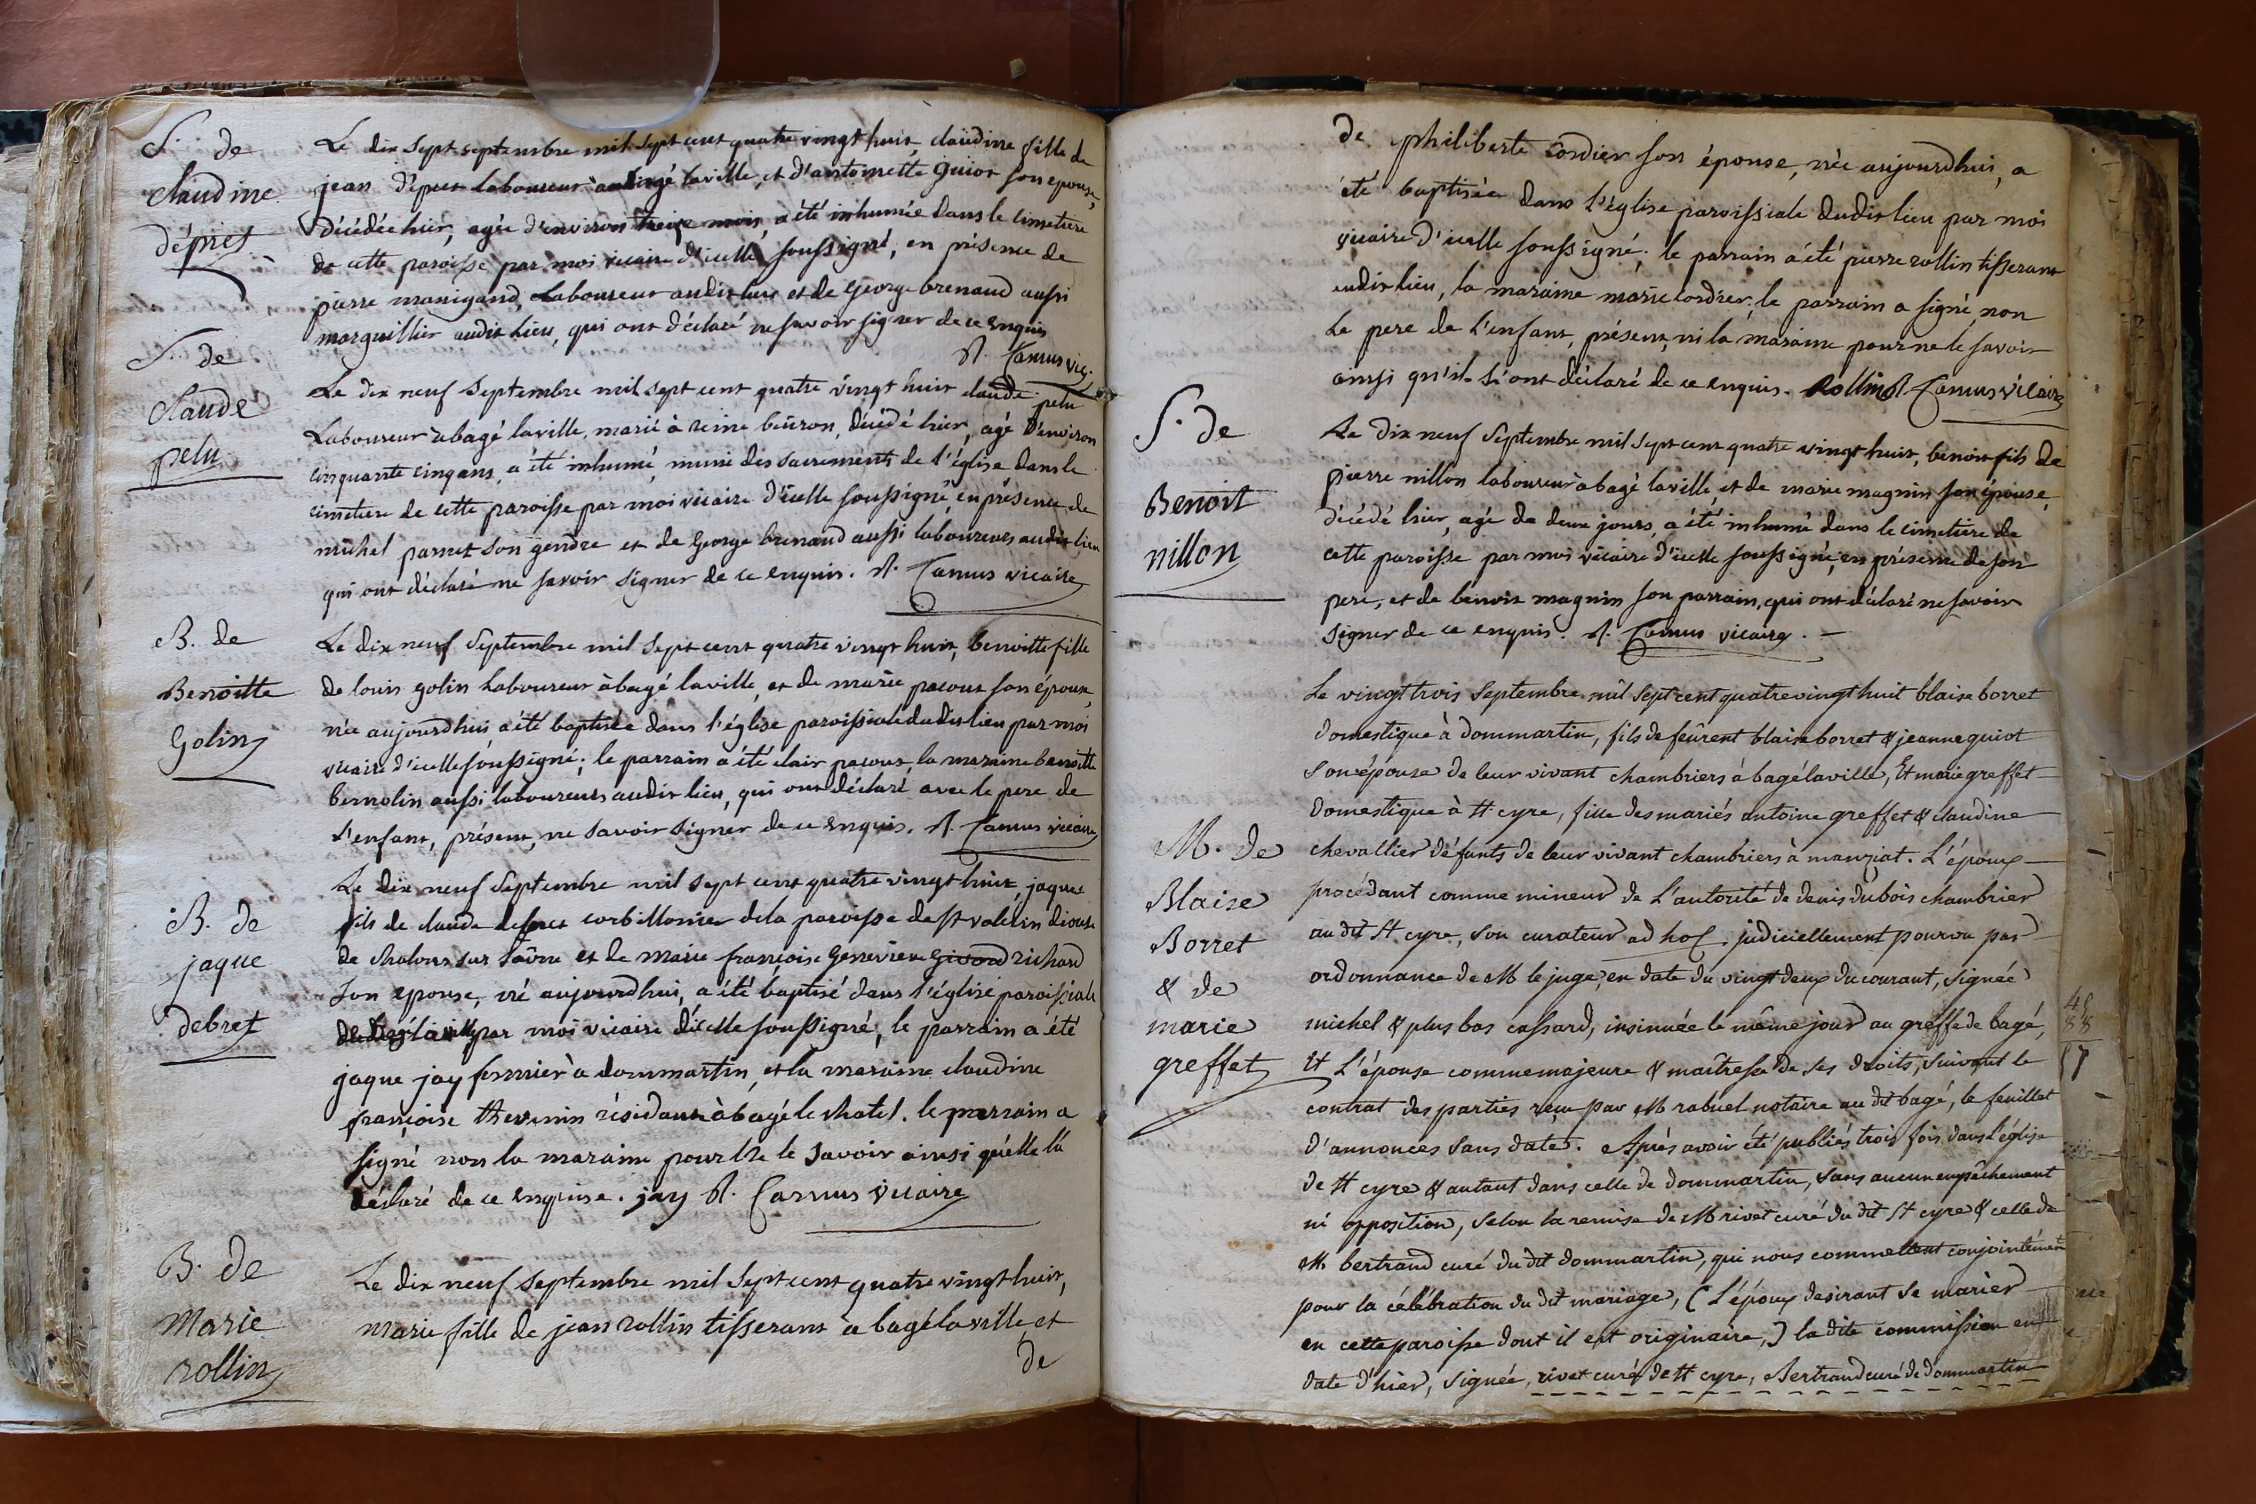 S. de
claudine
dépres
Le dix sept septembre mil sept cent quatre vingt huit, claudine fille de
jean dépres laboureur a bagé laville, et d'antoinette guiot son epouse,
décédée hier, agée d'environ treize mois, a été inhumée dans le cimetiere
de cette paroisse par moi vicaire d'icelle soussigné, en présence de
pierre manigand, laboureur audit lieu et de george brenaud aussi
marguillier audit lieu, qui ont déclaré ne savoir signer de ce enquis
A. Camus vic.
S. de
claude
pelu
Le dix neuf septembre mil sept cent quatre vingt huit claude pelu
laboureur à bagé laville, marié à reine beuron, décédé hier, agé d'environ
cinquante cinq ans, a été inhumé, muni des sacrements de l'église dans le
cimetiere de cette paroisse par moi vicaire d'icelle soussigné, en présence de
michel pannet son gendre et de george brenaud aussi laboureurs audit lieu
qui ont déclaré ne savoir signer de ce enquis. A. Camus vicaire
B. de
Benoitte
Golin
Le dix neuf septembre mil sept cent quatre vingt huit, benoitte fille
de louis golin laboureur à bagé laville, et de marie pacout son épouse,
née aujourdhui a été baptisée dans l'église paroissiale dudit lieu par moi
vicaire d'icelle soussigné; le parrain a été clair pacout, la maraine benoitte
bernolin aussi laboureurs audit lieu, qui ont déclaré avec le pere de
l'enfant, présent, ne savoir signer de ce enquis. A. Camus vicaire
B. de
jaque
debret
Le dix neuf septembre mil sept cent quatre vingt huit, jaques
fils de claude debret corbillonier de la paroisse de st valerin diocese
de chalons sur saône et de marie françoise genevieve richard
son epouse, né aujourdhui, a été baptisé dans l'église paroissiale
de bagé laville par moi vicaire d'icelle soussigné, le parrain a été
jaque jay fermier à dommartin, et la maraine claudine
françoise thevenin résidante à bagé le chatel. le parrain a
signé non la maraine pour ne le savoir ainsi qu'elle l'a
déclaré de ce enquise. jay A. Camus vicaire
B. de
Marie
rollin
Le dix neuf septembre mil sept cent quatre vingt huit,
marie fille de jean rollin tisserant à bagé laville et
de
de philiberte cordier son épouse, née aujourdhui, a
été baptisée dans l'église paroissiale dudit lieu par moi
vicaire d'icelle soussigné; le parrain a été pierre rollin tisserant
audit lieu, la maraine marie cordier; le parrain a signé non
le pere de l'enfant, présent, ni la maraine pour ne le savoir
ainsi qu'ils ont déclaré de ce enquis. Rollin A. Camus vicaire
S. de
Benoit
nillon
Le dix neuf septembre mil sept cent quatre vingt huit, benoit fils de
pierre nillon laboureur à bagé laville, et de marie magnin son épouse,
décédé hier, agé de deux jours, a été inhumé dans le cimetiere de
cette paroisse par moi vicaire d'icelle soussigné, en présence de son
pere, et de benoit magnin son parrain, qui ont déclaré ne savoir
signer de ce enquis. A. Camus vicaire.
M. de
Blaise
Borret
& de
marie
greffet
Le vingt trois septembre mil sept cent quatre vingt huit blaise borret
domestique à dommartin, fils de feûrent blaise borret & jeanne guiot
son épouse de leur vivant chambriers à bagé laville, Et marie greffet
domestique à st cyre, fille des mariés antoine greffet & claudine
chevallier défunts de leur vivant chambriers à manziat. L'époux
procédant comme mineur de l'autorité de denis dubois chambrier
au dit st cyre, son curateur ad hoc, judiciellement pourvu par
ordonnance de M le juge, en date du vingt deux du courant, signée
michel & plus bas cassard, insinuée le même jour au greffe de bagé,
et L'épouse comme majeure & maîtresse de ses droits, suivant le
contrat des parties reçu par M rabuel notaire au dit bagé, le feuillet
d'annonces sans date. Après avoir été publiés trois fois dans l'église
de st cyre & autant dans celle de dommartin, sans aucun empêchement
ni opposition, selon la remise de M rivet curé du dit st cyre & celle de
M. bertrand curé du dit dommartin, qui nous commettent conjointement
pour la célébration du dit mariage, (L'époux desirant se marier
en cette paroisse dont il est originaire,) la dite commission en
date d'hier, signée, rivet curé de st cyre, Bertrand curé de dommartin